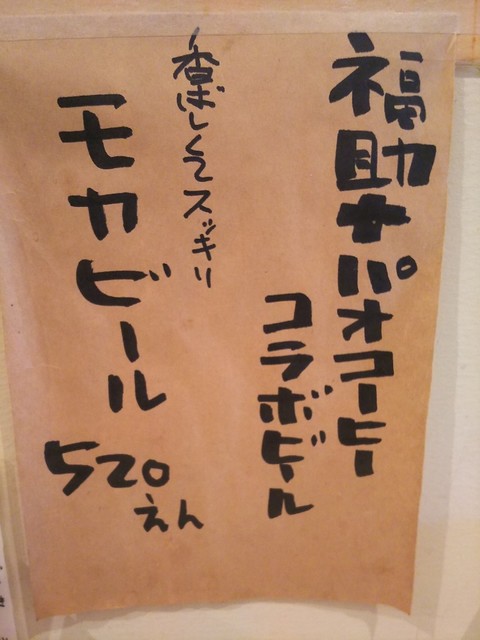 福助+パオコーヒー
コラボビール
香ばしくてスッキリ
モカビール
520
えん